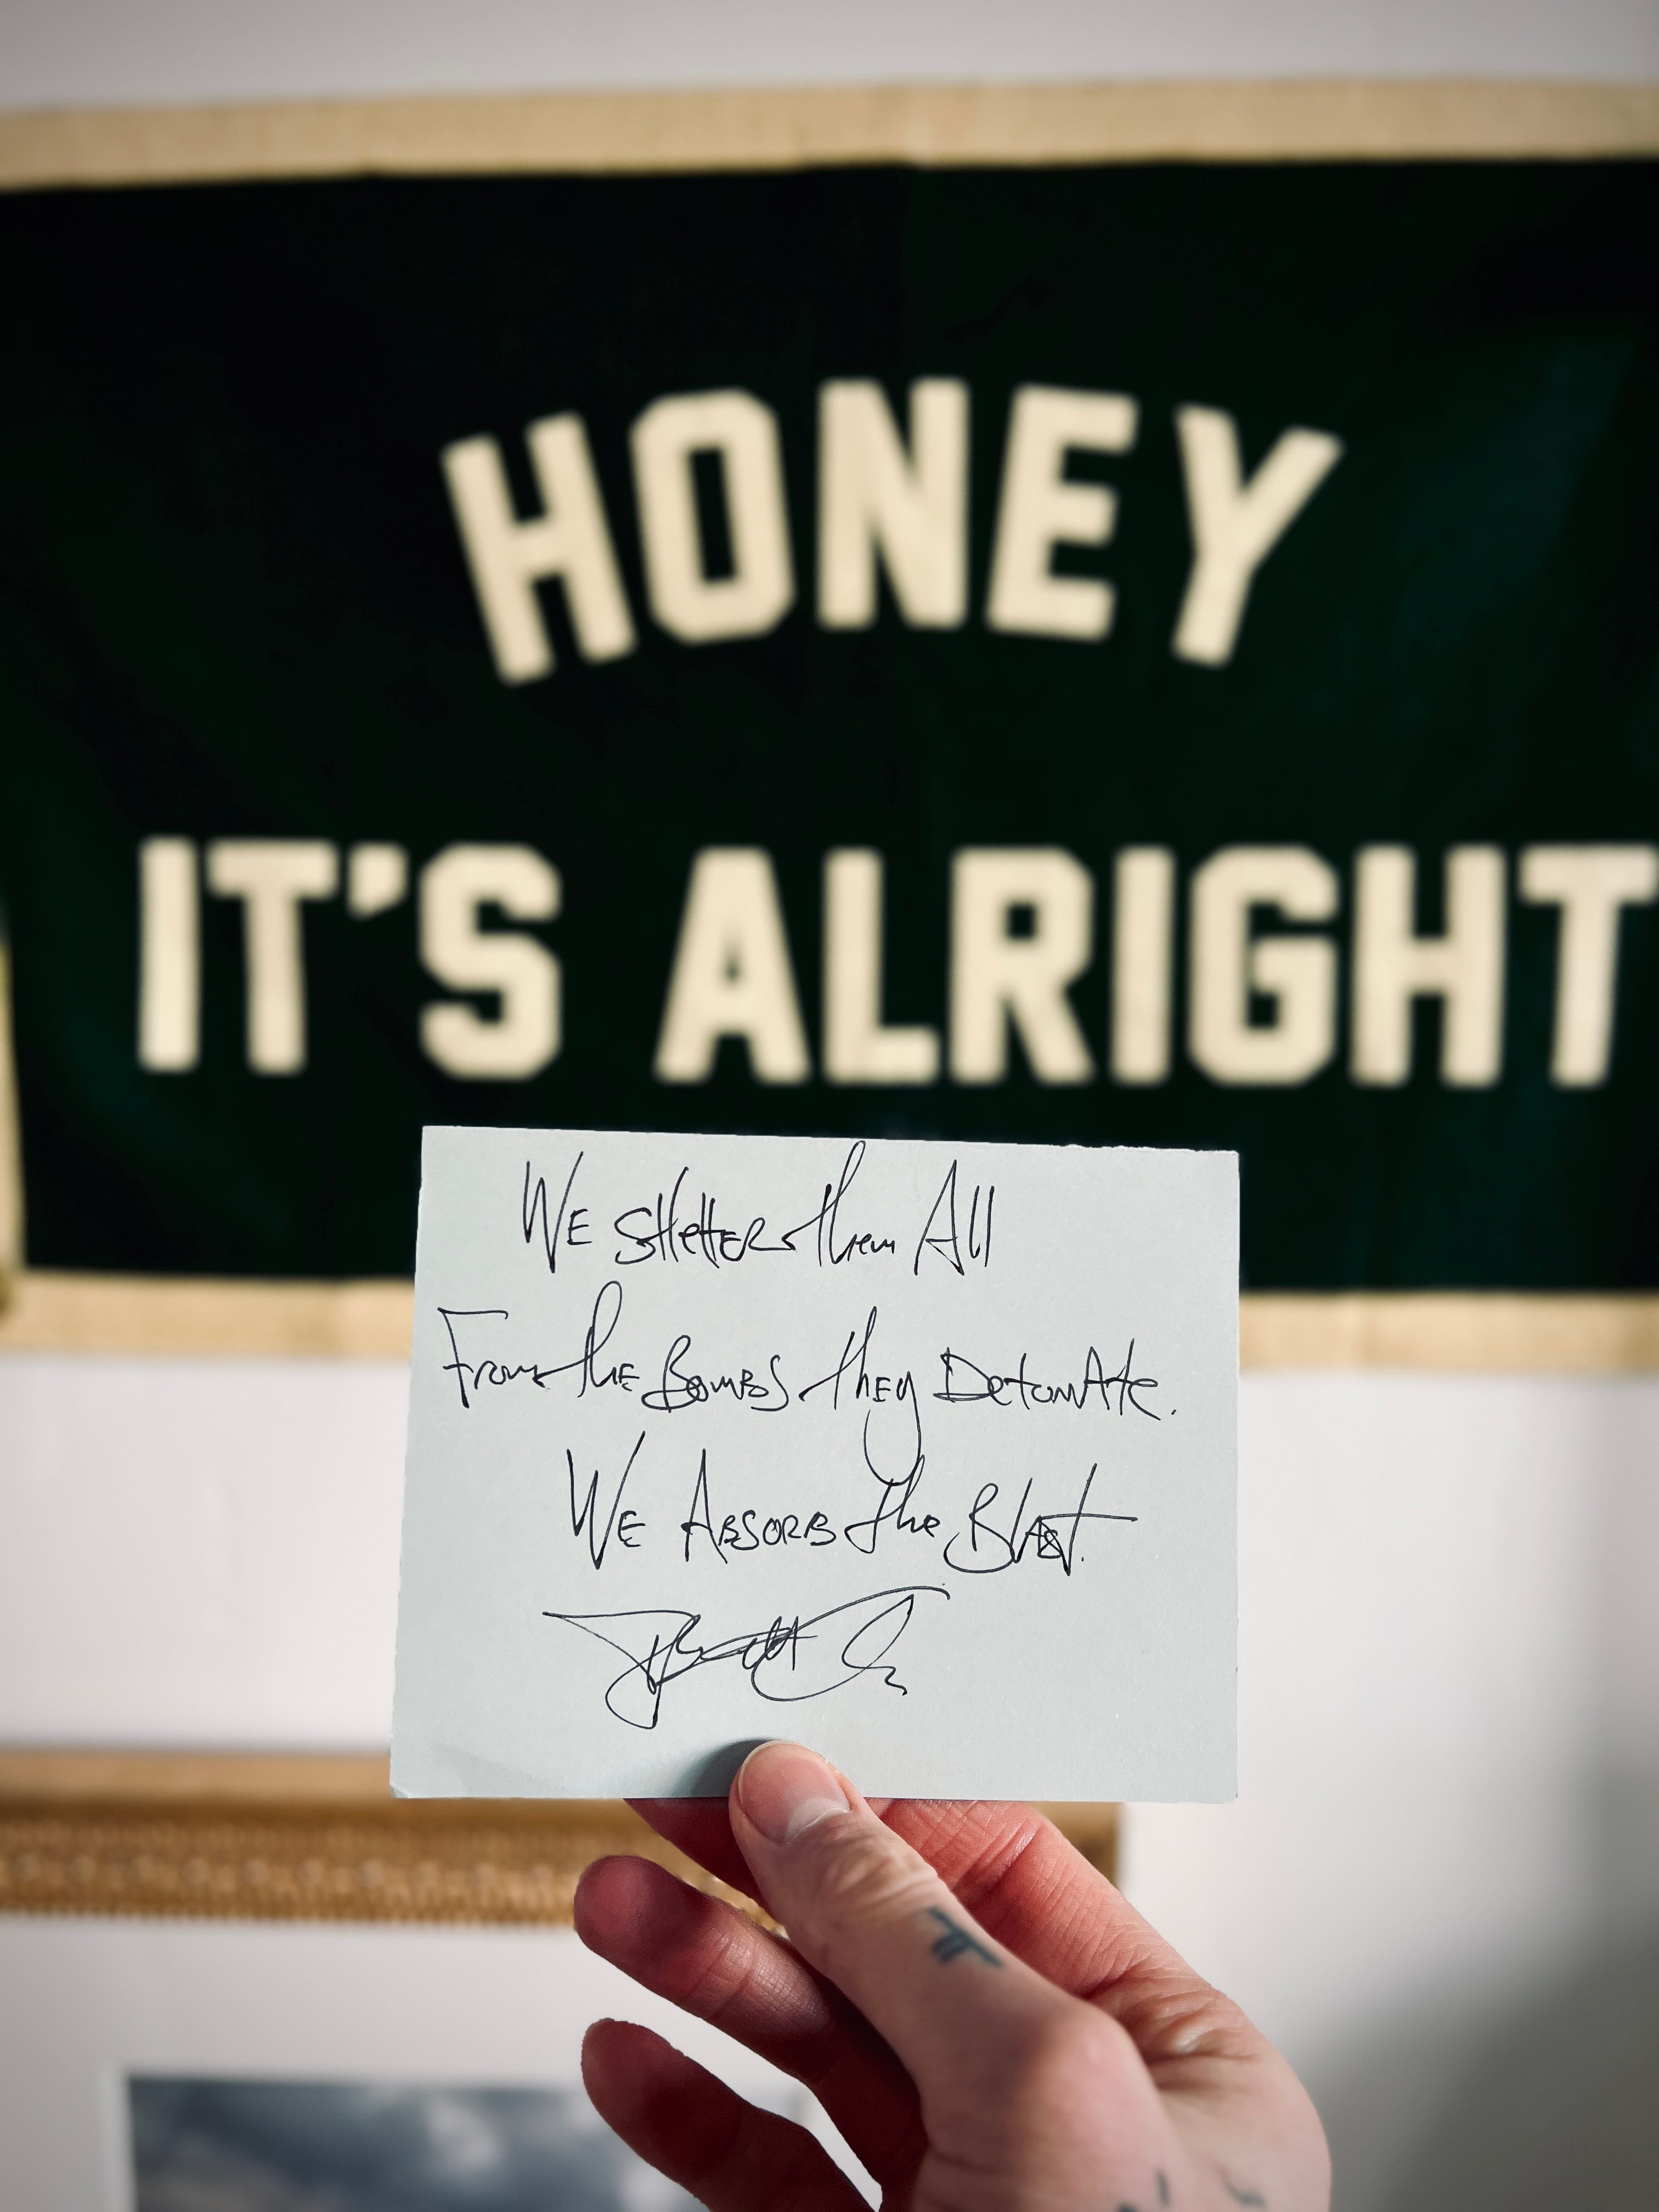 HONEY
IT'S ALRIGHT
WE SHelteR them All
From the BomBS they DetonAte.
WE ABSORB the BlAst.